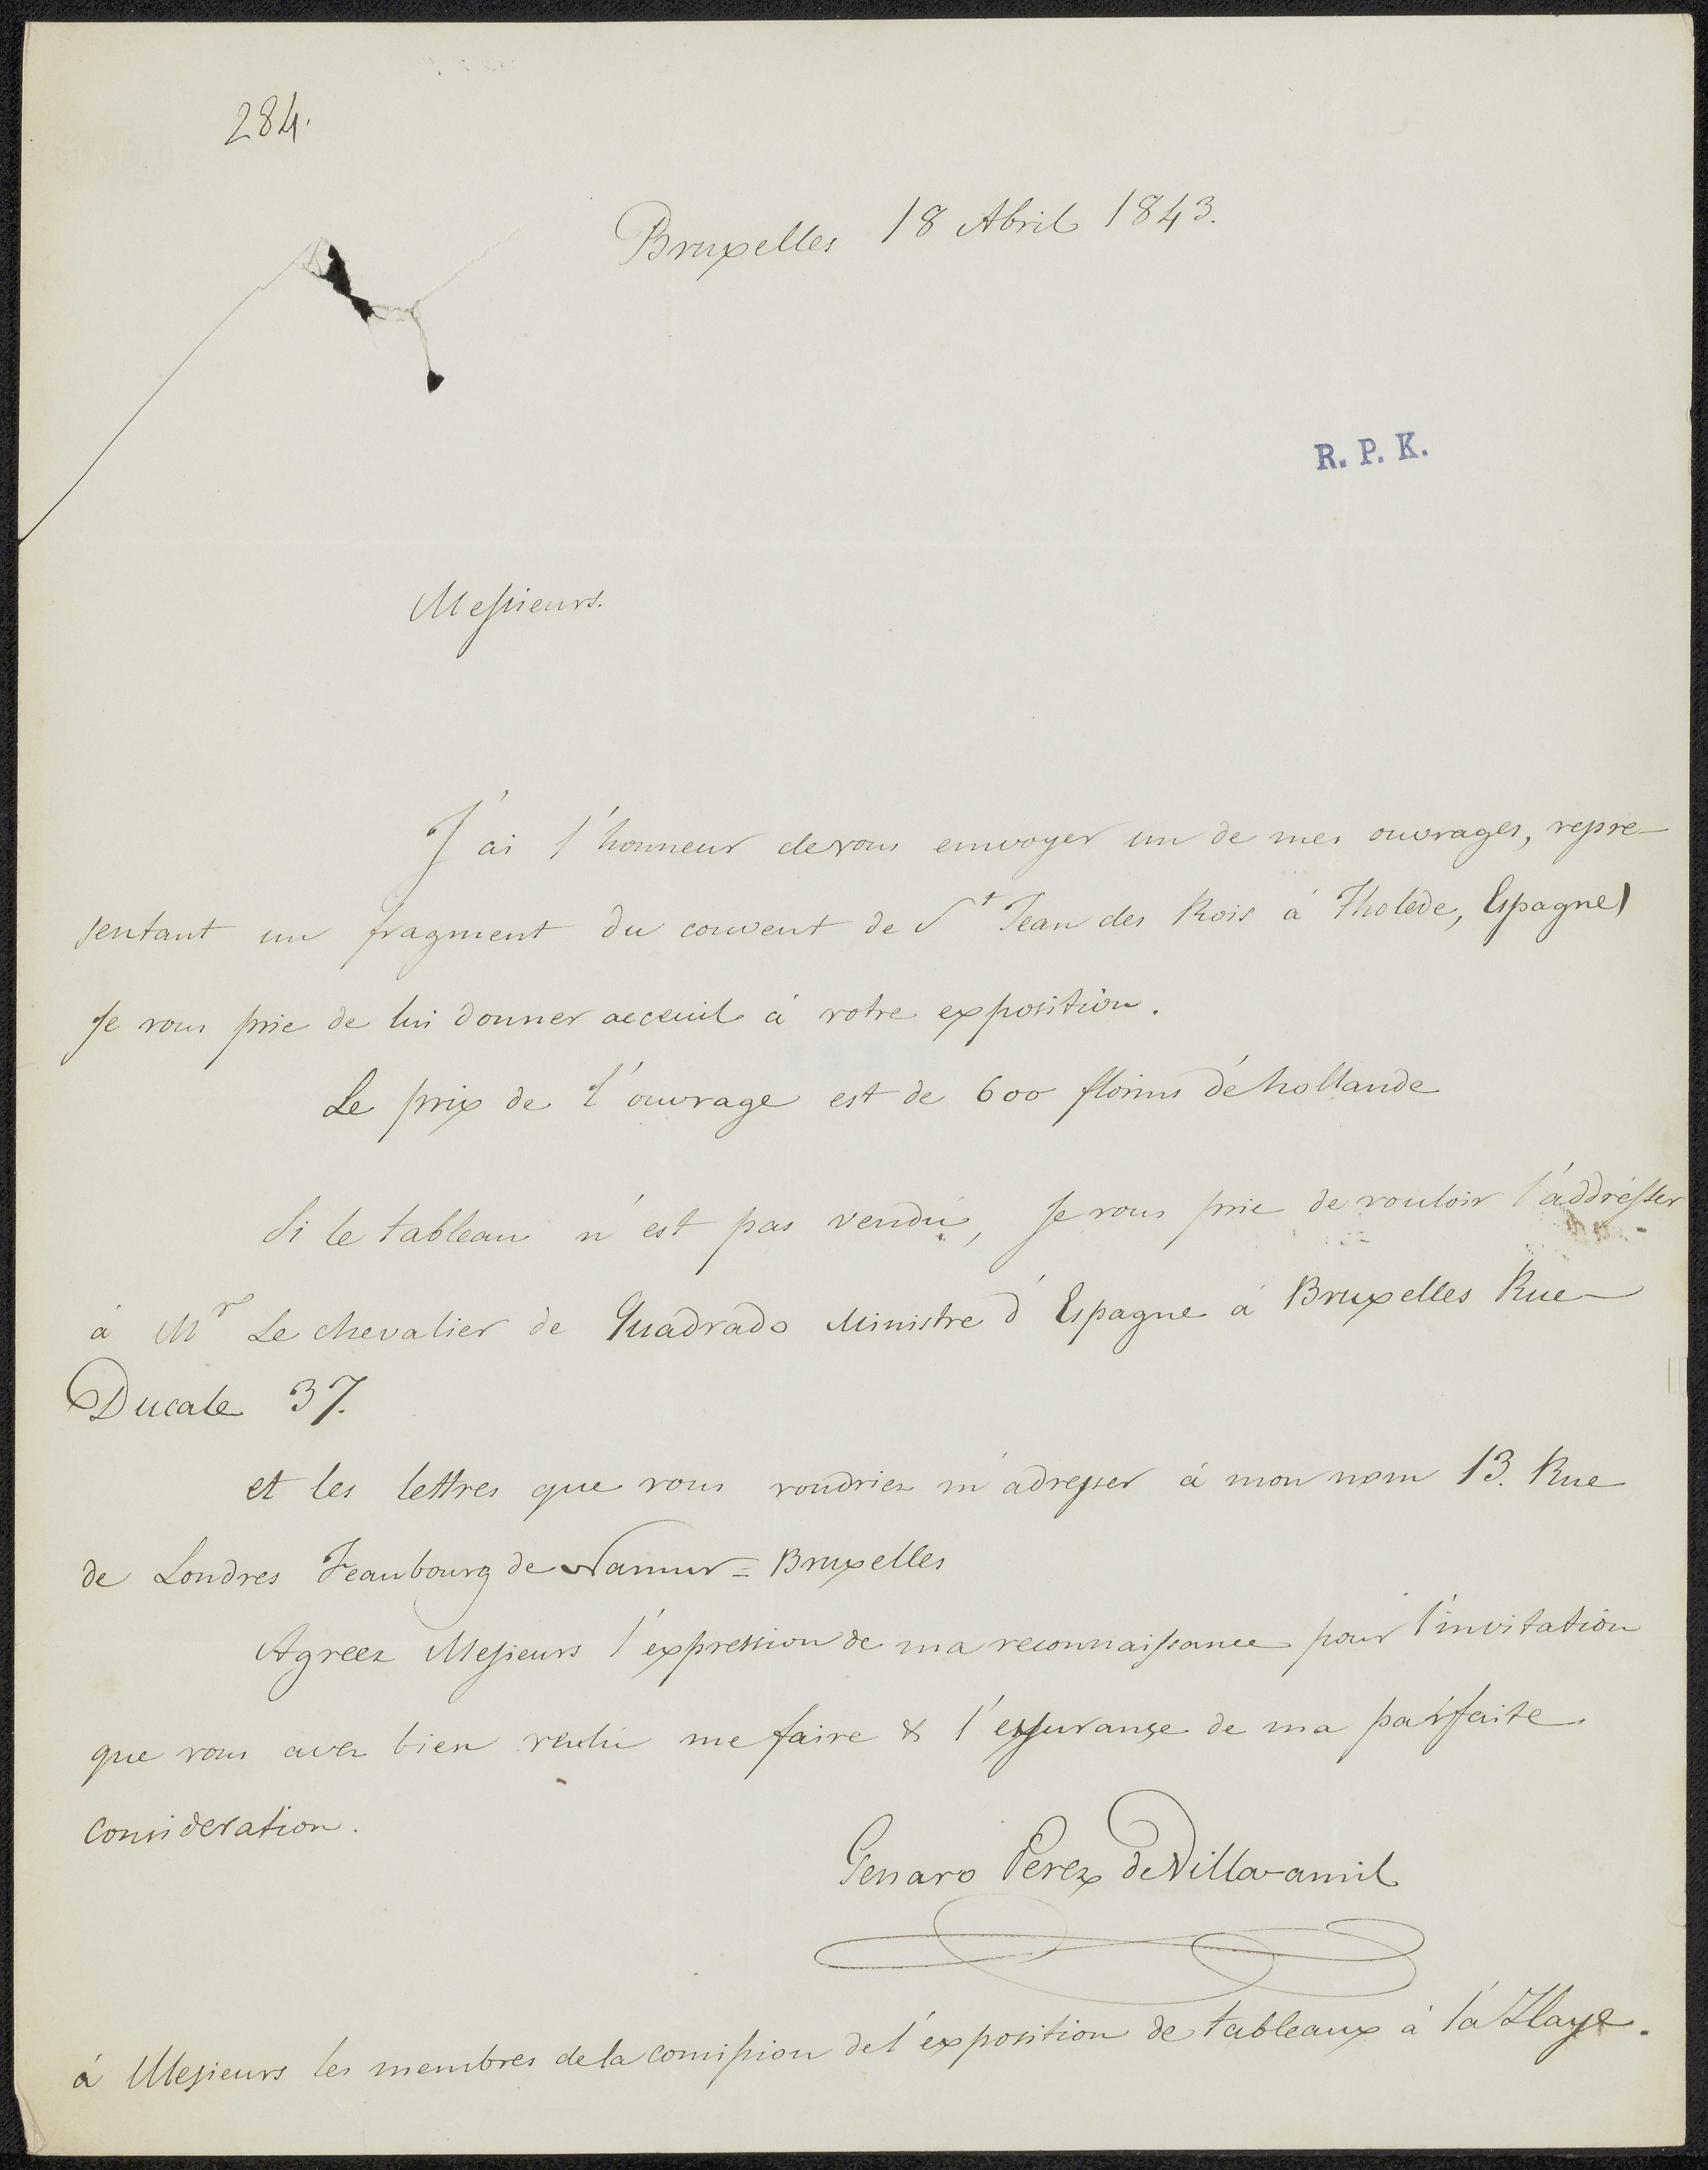 284.
Bruxelles 18 Abril 1843.
R. P. K.
Messieurs.
J'ai l'honneur de vous envoyer un de mes ouvrages, repre-
sentant un fragment du couvent de St Jean des Rois à Tholede, Espagne)
Je vous prie de lui donner acceuil à votre exposition.
Le prix de l'ouvrage est de 600 florins de hollande
Si le tableau n'est pas vendu, Je vous prie de vouloir l'addresser
à Mr Le chevalier de Quadrado Ministre d'Espagne à Bruxelles Rue
Ducale 37.
et les lettres que vous voudriez m'adresser à mon nom 13. Rue
de Londres Feaubourg de Namur = Bruxelles
Agreez Messieurs l'expression de ma reconnaissance pour l'invitation
que vous avez bien voulu me faire & l'essurançe de ma parfaite
consideration.
Genaro Perez de Villa-amil
à Messieurs les membres de la comission de l'exposition de tableaux à la Haye.